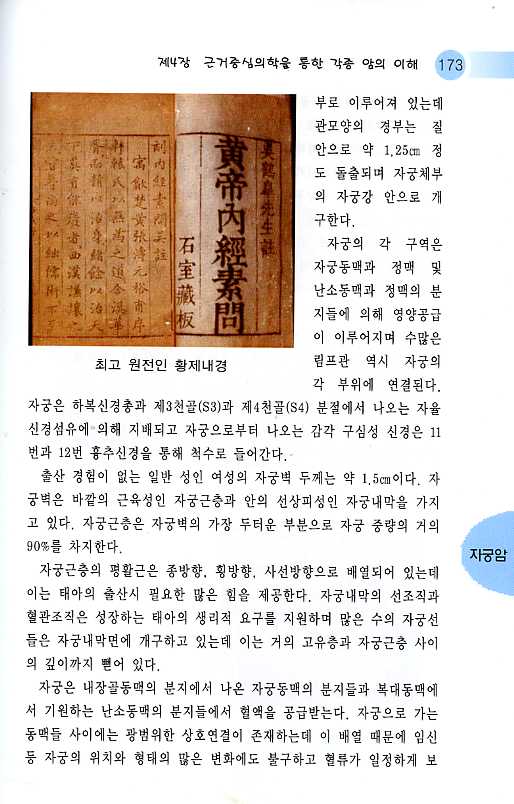 제4장 근거중심의학을 통한 각종 암의 이해 173
黃帝內經素問
吳鶴皐先生註
石室藏板
刻內經素問吳註
최고 원전인 황제내경
부로 이루어져 있는데
관모양의 경부는 질
안으로 약 1.25㎝ 정
도 돌출되며 자궁체부
의 자궁강 안으로 개
구한다.
자궁의 각 구역은
자궁동맥과 정맥 및
난소동맥과 정맥의 분
지들에 의해 영양공급
이 이루어지며 수많은
림프관 역시 자궁의
각 부위에 연결된다.
자궁은 하복신경총과 제3천골(S3)과 제4천골(S4) 분절에서 나오는 자율
신경섬유에 의해 지배되고 자궁으로부터 나오는 감각 구심성 신경은 11
번과 12번 흉추신경을 통해 척수로 들어간다.
출산 경험이 없는 일반 성인 여성의 자궁벽 두께는 약 1.5㎝이다. 자
궁벽은 바깥의 근육성인 자궁근층과 안의 선상피성인 자궁내막을 가지
고 있다. 자궁근층은 자궁벽의 가장 두터운 부분으로 자궁 중량의 거의
90%를 차지한다.
자궁암
자궁근층의 평활근은 종방향, 횡방향, 사선방향으로 배열되어 있는데
이는 태아의 출산시 필요한 많은 힘을 제공한다. 자궁내막의 선조직과
혈관조직은 성장하는 태아의 생리적 요구를 지원하며 많은 수의 자궁선
들은 자궁내막면에 개구하고 있는데 이는 거의 고유층과 자궁근층 사이
의 깊이까지 뻗어 있다.
자궁은 내장골동맥의 분지에서 나온 자궁동맥의 분지들과 복대동맥에
서 기원하는 난소동맥의 분지들에서 혈액을 공급받는다. 자궁으로 가는
동맥들 사이에는 광범위한 상호연결이 존재하는데 이 배열 때문에 임신
등 자궁의 위치와 형태의 많은 변화에도 불구하고 혈류가 일정하게 보